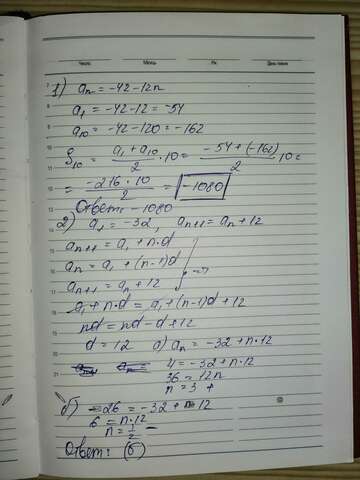 Число Месяц Год День недели
1) aₙ = -42-12n
a₁ = -42-12 = -54
a₁₀ = -42-120 = -162
S₁₀ = (a₁ + a₁₀)/2 · 10 = (-54+(-162))/2 10 =
= (-216 · 10)/2 = -1080
Ответ: -1080
2) a₁ = -32, aₙ₊₁ = aₙ + 12
aₙ₊₁ = a₁ + n·d
aₙ = a₁ + (n-1)d
aₙ₊₁ = aₙ + 12 =>
a₁ + n·d = a₁ + (n-1)d + 12
nd = nd - d + 12
d = 12 а) aₙ = -32 + n·12
4 = -32 + n·12
36 = 12n
n = 3 +
б) -26 = -32 + n·12
6 = n·12
n = 1/2 -
Ответ: (б)